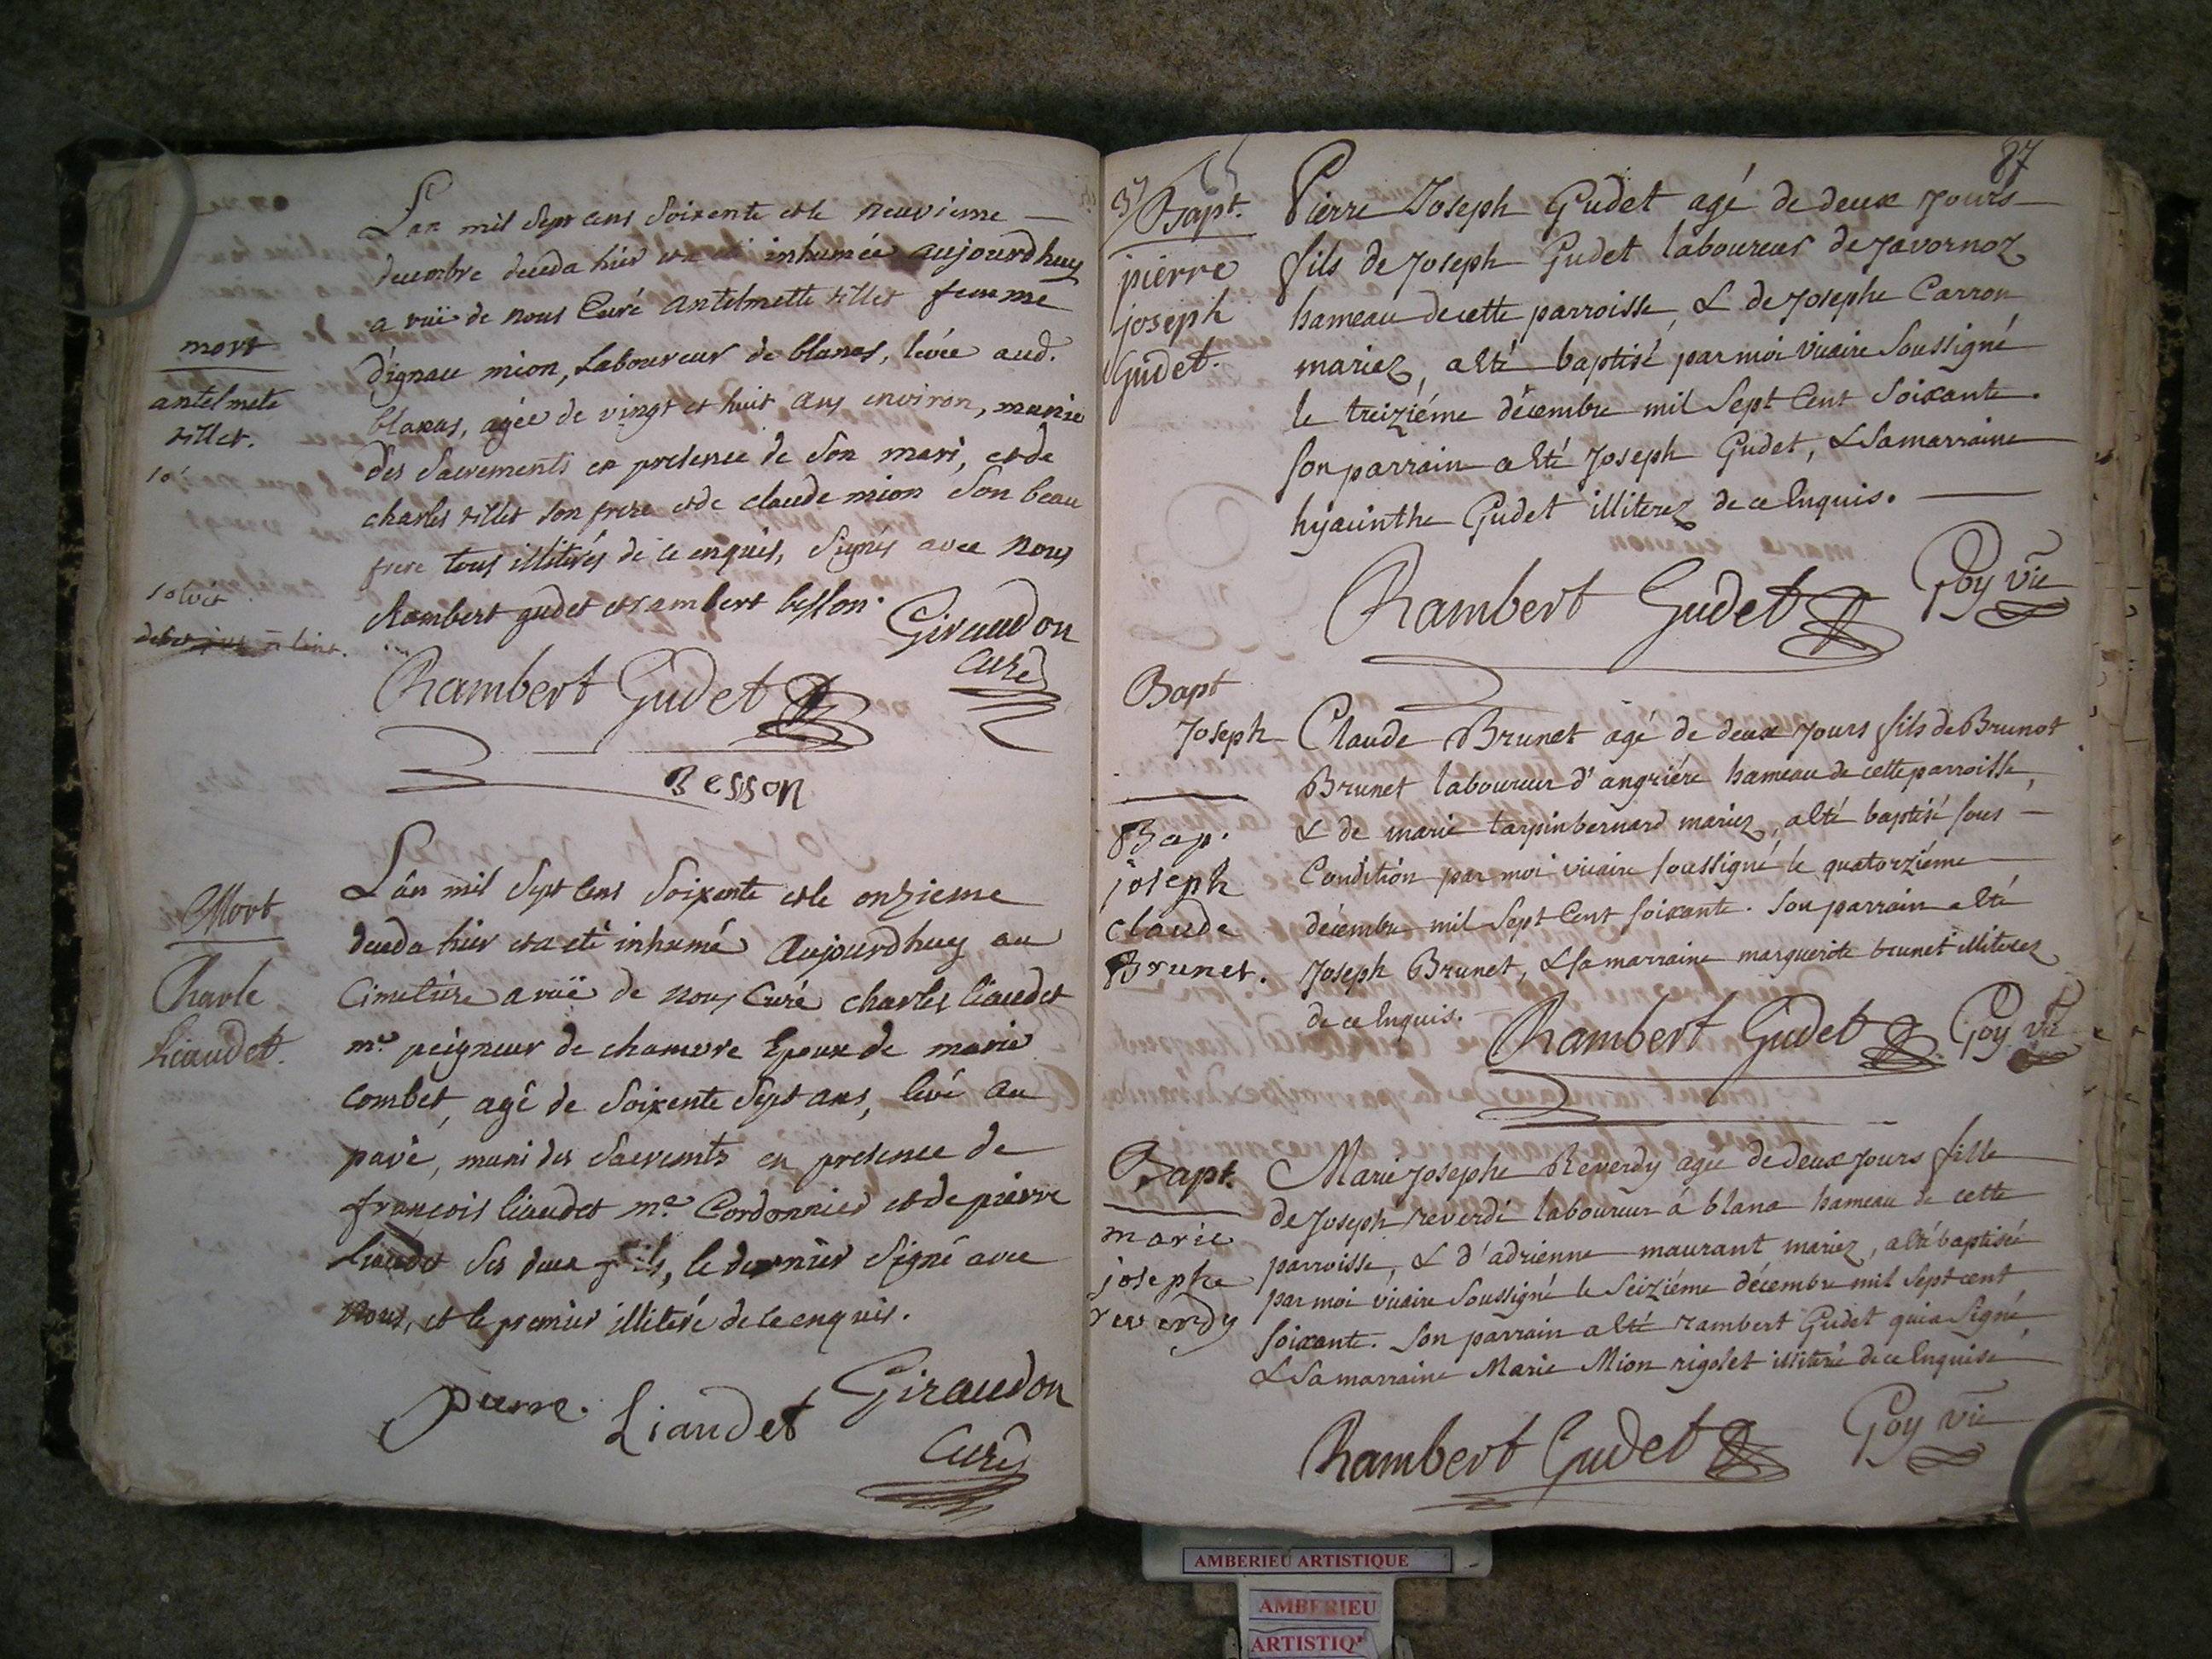 mort
antelmete
tillet.
Lan mil Sept cens Soixente et le neuvieme
decembre deceda hier et a été inhumée aujourdhuy
a vüe de nous Curé antelmette tillet femme
d'ignace mion, Laboureur de blanas, levée aud.
blanas, agée de vingt et huit ans environ, munie
des Sacrements en presence de Son mari, et de
charles tillet son frere et de claude mion Son beau
frere tous illiterés de ce enquis, Signés avec nous
Rambert gudet et rambert besson.
Giraudon
Curé
Rambert Gudet
Besson
Mort
Charle
Liaudet.
Lân mil Sept Cens Soixente et le onzieme
deceda hier et a eté inhumé Aujourdhuy au
Cimetiére a vüe de nous Curé charles liaudet
me peigneur de chanvre Epoux de marie
Combet, agé de Soixente Sept ans, levé au
pavé, muni des Sacremts en presence de
françois liaudet me Cordonnier et de pierre
liaudet Ses deux fils, le dernier Signé avec
nous, et le premier illiteré de ce enquis.
pierre Liaudet
Giraudon
Curé
87
Bapt.
pierre
joseph
Gudet.
Pierre Joseph Gudet agé de deux Jours
fils de Joseph Gudet laboureur de Javornoz
hameau de cette parroisse, & de Josephe Carron
mariez, a été baptisé par moi vicaire Soussigné
le treiziéme décembre mil Sept Cent Soixante.
Son parrain a été Joseph Gudet, & Sa marraine
hyacinthe Gudet illiterez de ce Enquis.
Rambert Gudet
Goy vic
Bapt
Joseph Claude Brunet agé de deux Jours fils de Brunot
Brunet laboureur d'angriére hameau de cette parroisse,
& de marie tarpinbernard mariez, a été baptisé sous
Condition par moi vicaire soussigné le quatorziéme
décembre mil Sept Cent soixante. Son parrain a été
Joseph Brunet, & Sa marraine marguerite brunet illiterez
de ce Enquis.
Bap.
joseph
claude
Brunet.
Rambert Gudet
Goy vic
Bapt.
marie
josephe
reverdy
Marie Josephe Reverdy agée de deux Jours fille
de Joseph reverdi laboureur á blana hameau de cette
parroisse, & d'adrienne maurant mariez, a été baptisée
par moi vicaire Soussigné le Seiziéme décembre mil Sept cent
soixante. Son parrain a été rambert Gudet qui a Signé,
& Sa marraine Marie Mion rigolet illiteré de ce Enquise
Rambert Gudet
Goy vic
AMBERIEU ARTISTIQUE
AMBERIEU
ARTISTIQ